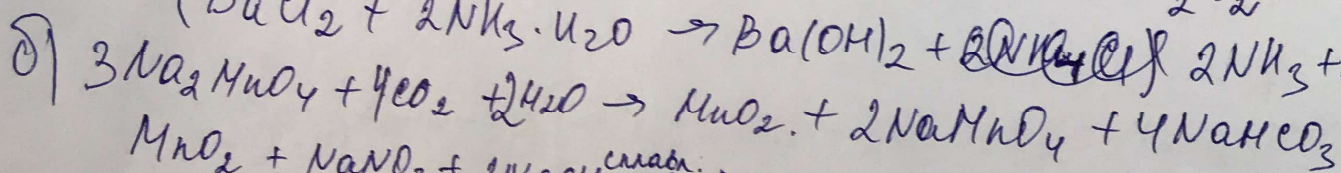 (BaCl2 + 2NH3·H2O → Ba(OH)2 + 2NH3 +
б) 3Na2MnO4 + 4CO2 + 2H2O → MnO2 + 2NaMnO4 + 4NaHCO3
MnO2 + NaNO3 + сплавл.